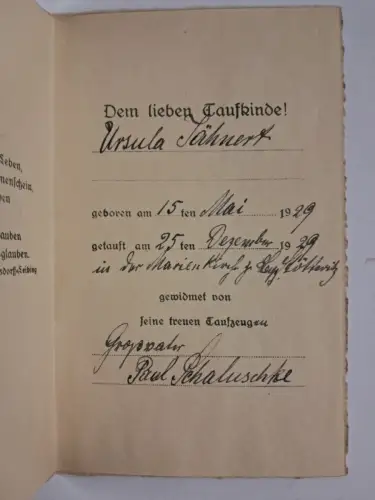 Leben,
nenschein,
ben
auben
glauben.
sdorff-Leibing
Dem lieben Taufkinde!
Ursula Jähnert
geboren am 15 ten Mai 1929
getauft am 25 ten Dezember 1929
in der Marienkirch z. Leipz. Stötteritz
gewidmet von
seine treuen Taufzeugen
Großvater
Paul Schaluschke